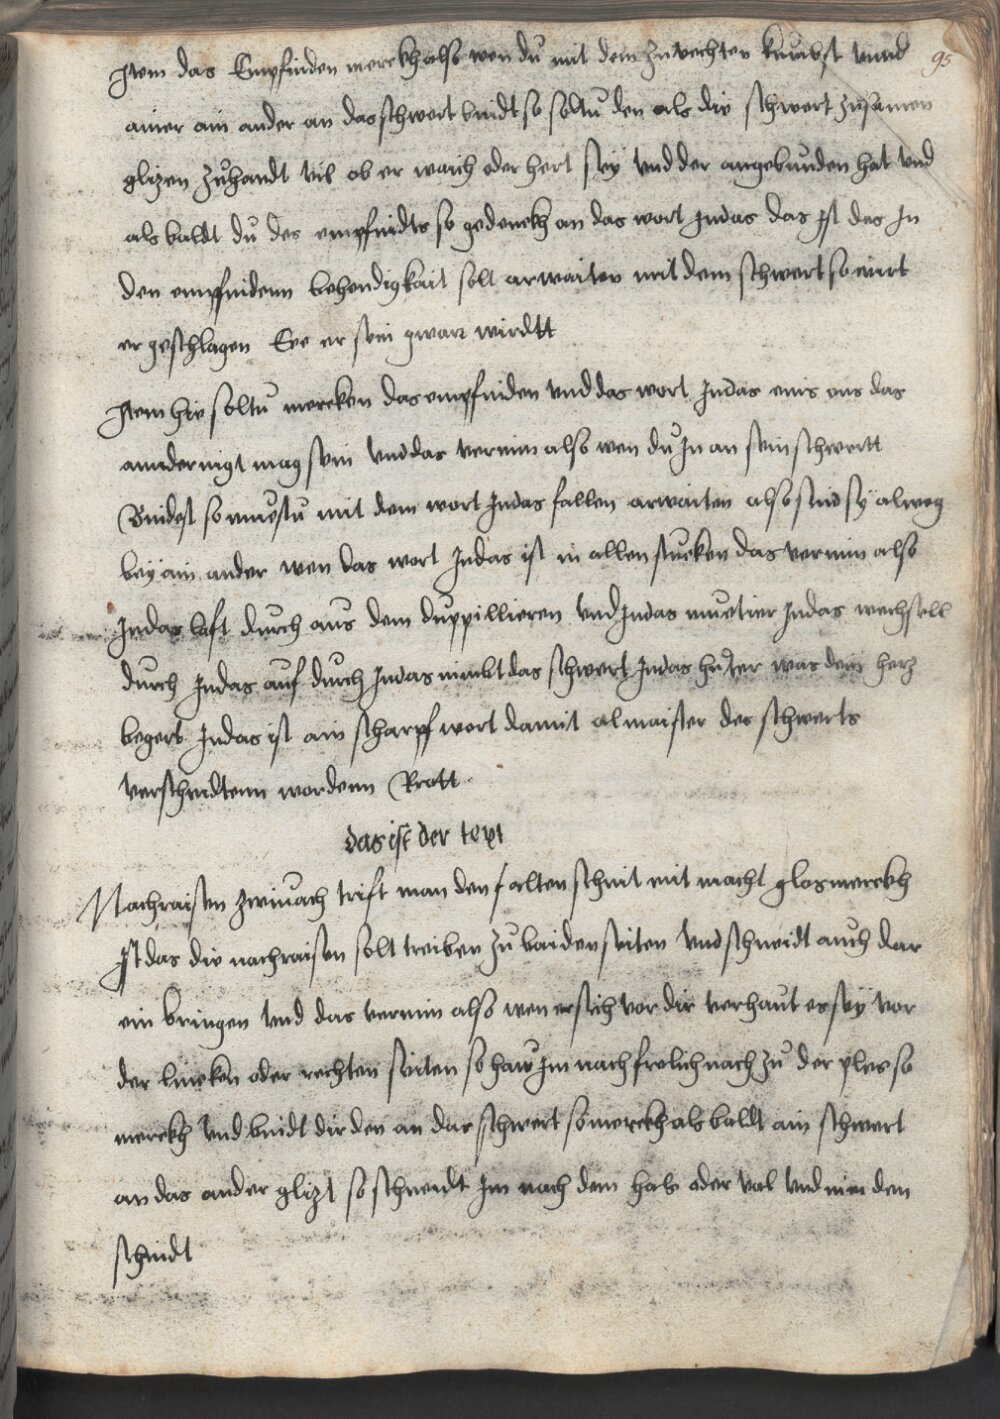 95
Item das Empfinden merckh also wen du mit dem Zuvechten kumbst vnnd
ainer ain ander an das schwert bindt so soltu den als die schwert zusamen
glizen zuhandt vil ob er waich oder hert sey vnd der angebunden hat vnd
als baldt du des empfindts so gedenckh an das wort Indas das ist das In
den empfindenn behendigkait solt arwaiten mit dem schwert so wirt
er geschlagen Eee er sein gwar wirdtt
Item hie soltu mercken das empfinden vnd das wort Indas ains ons das
annder nigt mag sein vnd das vernim also wen du In an sein schwertt
Bindest so muestu mit dem wort Indas fallen arwaiten also sind sy alweg
bey ain ander wen das wort Indas ist in allen stucken das vernim also
Indas laft durch aus dem duppillieren vnd Indas muetier Indas wechsell
durch Indas auf durch Indas nimbt das schwert Indas hinder was dein herz
begert Indas ist ain scharpf wort damit al maister des schwerts
verschnidtenn wordenn Rott
das ist der text
Nachraisen zwivach trift man den falten schnit mit macht glos merckh
Ist das die nachraisen solt treiben zu baiden seiten vnd schneidt auch dar
ein bringen vnd das vernim also wen er sich vor dir verhaut es sey vor
der lincken oder rechten seiten so haw Im nach frelich nach zu der ples so
merckh vnd bindt dir den an das schwert so merckh als baldt ain schwert
an das ander glizt so schneidt Im nach dem hals oder val vnd nim den
schnidt